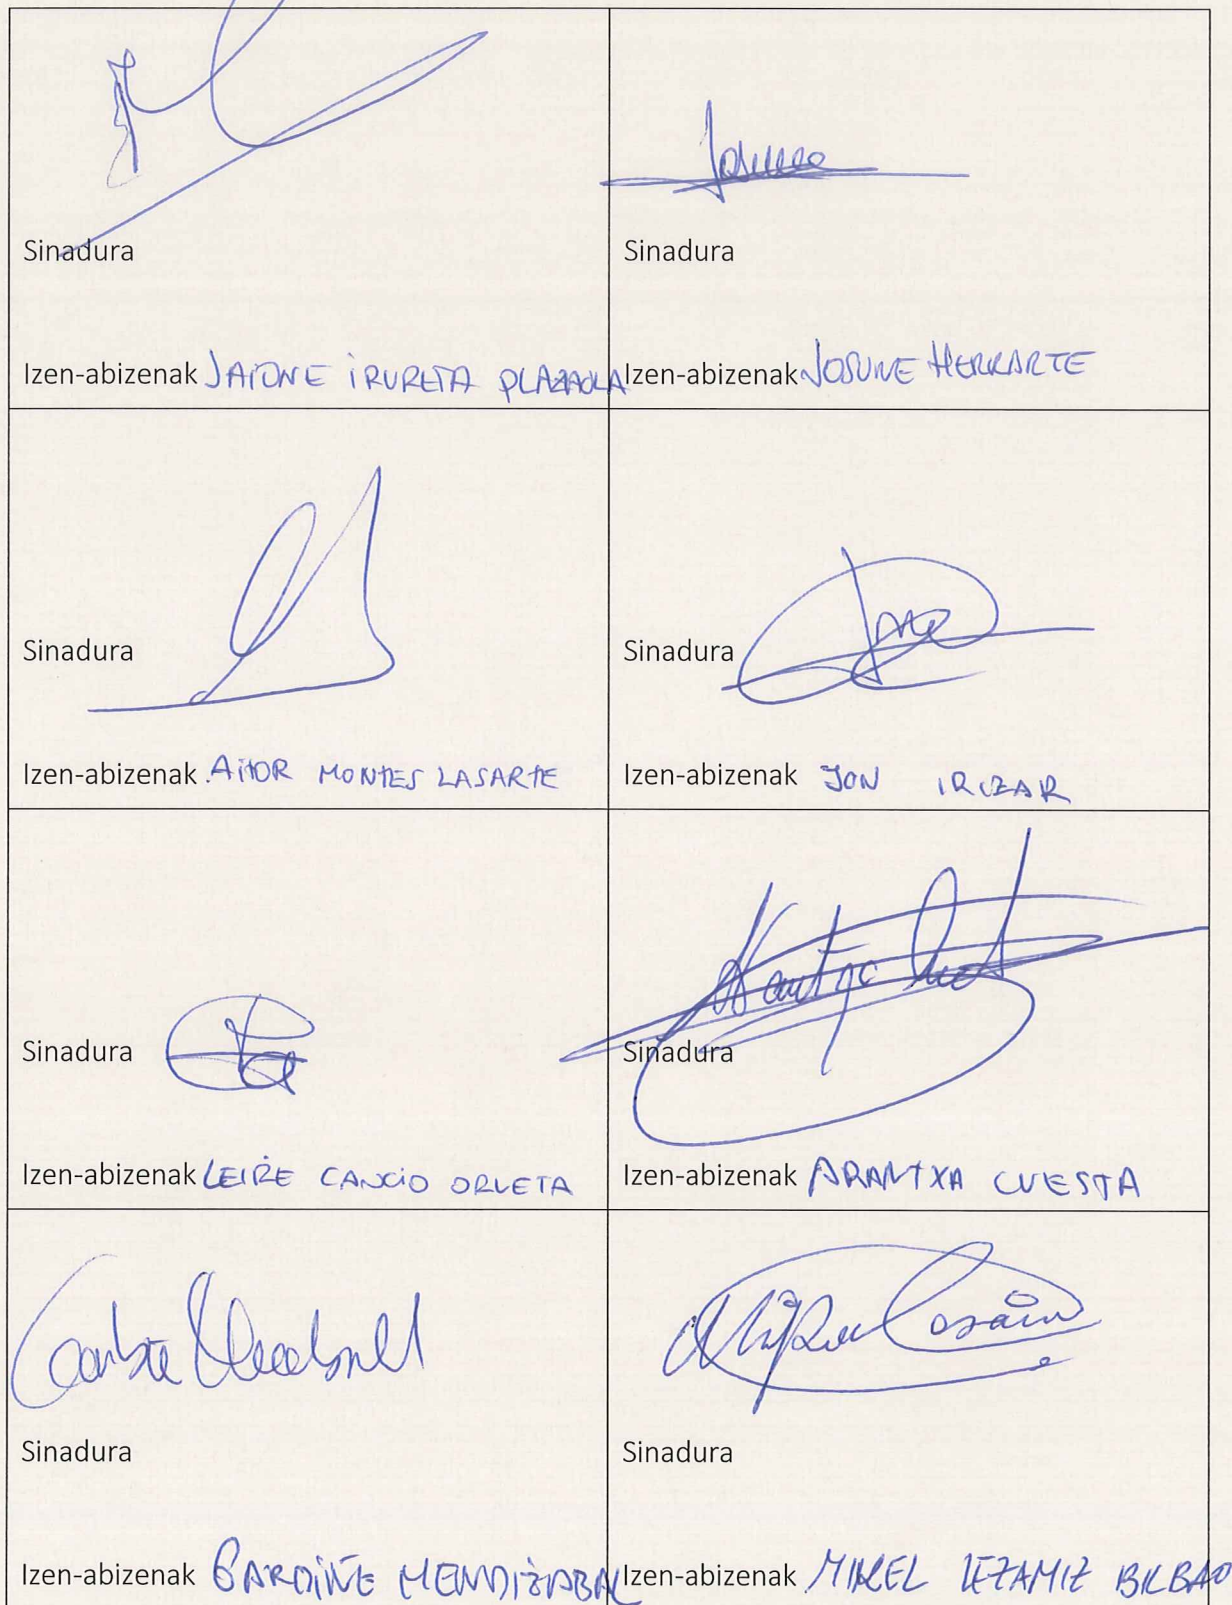 Sinadura
Izen-abizenak JAIONE IRURETA PLAZAOLA
Josune
Sinadura
Izen-abizenak JOSUNE HERRARTE
Sinadura
Izen-abizenak AITOR MONTES LASARTE
Sinadura
Izen-abizenak JON IRIZAR
Sinadura
Izen-abizenak LEIRE CANCIO ORUETA
Sinadura
Izen-abizenak ARANTXA CUESTA
Sinadura
Izen-abizenak GARDIÑE MENDIZABAL
Sinadura
Izen-abizenak MIKEL LEZAMIZ BILBAO